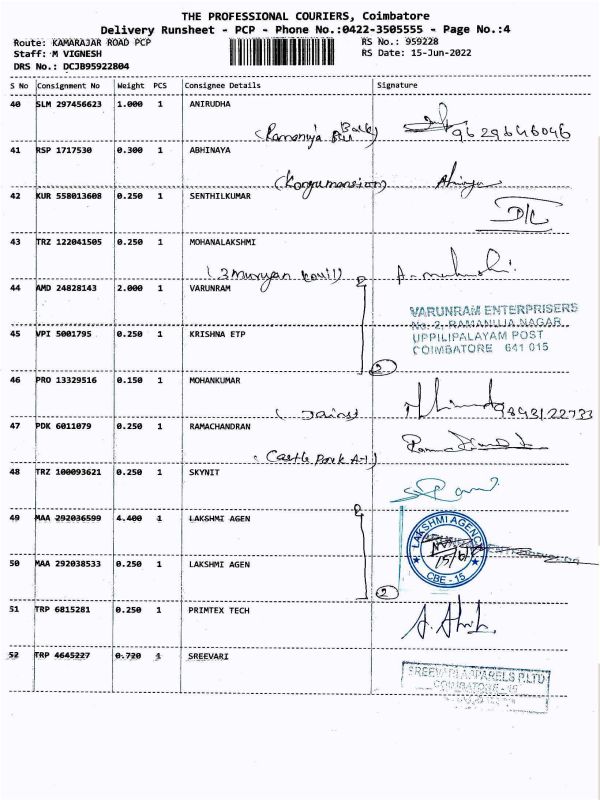 THE PROFESSIONAL COURIERS, Coimbatore
Delivery Runsheet - PCP - Phone No.:0422-3505555 - Page No.:4
Route: KAMARAJAR ROAD PCP
Staff: M VIGNESH
DRS No.: DCJB95922804
RS No.: 959228
RS Date: 15-Jun-2022
S No Consignment No Weight PCS Consignee Details Signature
40 SLM 297456623 1.000 1 ANIRUDHA
9629646046
41 RSP 1717530 0.300 1 ABHINAYA
(Kongumansion)
42 KUR 558013608 0.250 1 SENTHILKUMAR
D/L
43 TRZ 122041505 0.250 1 MOHANALAKSHMI
(3 Muruyan kovil)
44 AMD 24828143 2.000 1 VARUNRAM
VARUNRAM ENTERPRISERS
No. 2, RAMANUJA NAGAR
UPPILIPALAYAM POST
COIMBATORE 641 015
45 VPI 5001795 0.250 1 KRISHNA ETP
2
46 PRO 13329516 0.150 1 MOHANKUMAR
9843122733
47 PDK 6011079 0.250 1 RAMACHANDRAN
(Castle Park A-1)
48 TRZ 100093621 0.250 1 SKYNIT
49 MAA 292036599 4.400 1 LAKSHMI AGEN
LAKSHMI AGENCY
15/6/
CBE - 15
50 MAA 292038533 0.250 1 LAKSHMI AGEN
2
51 TRP 6815281 0.250 1 PRIMTEX TECH
52 TRP 4645227 0.720 1 SREEVARI
SREEVARI APPARELS P.LTD
COIMBATORE - 15